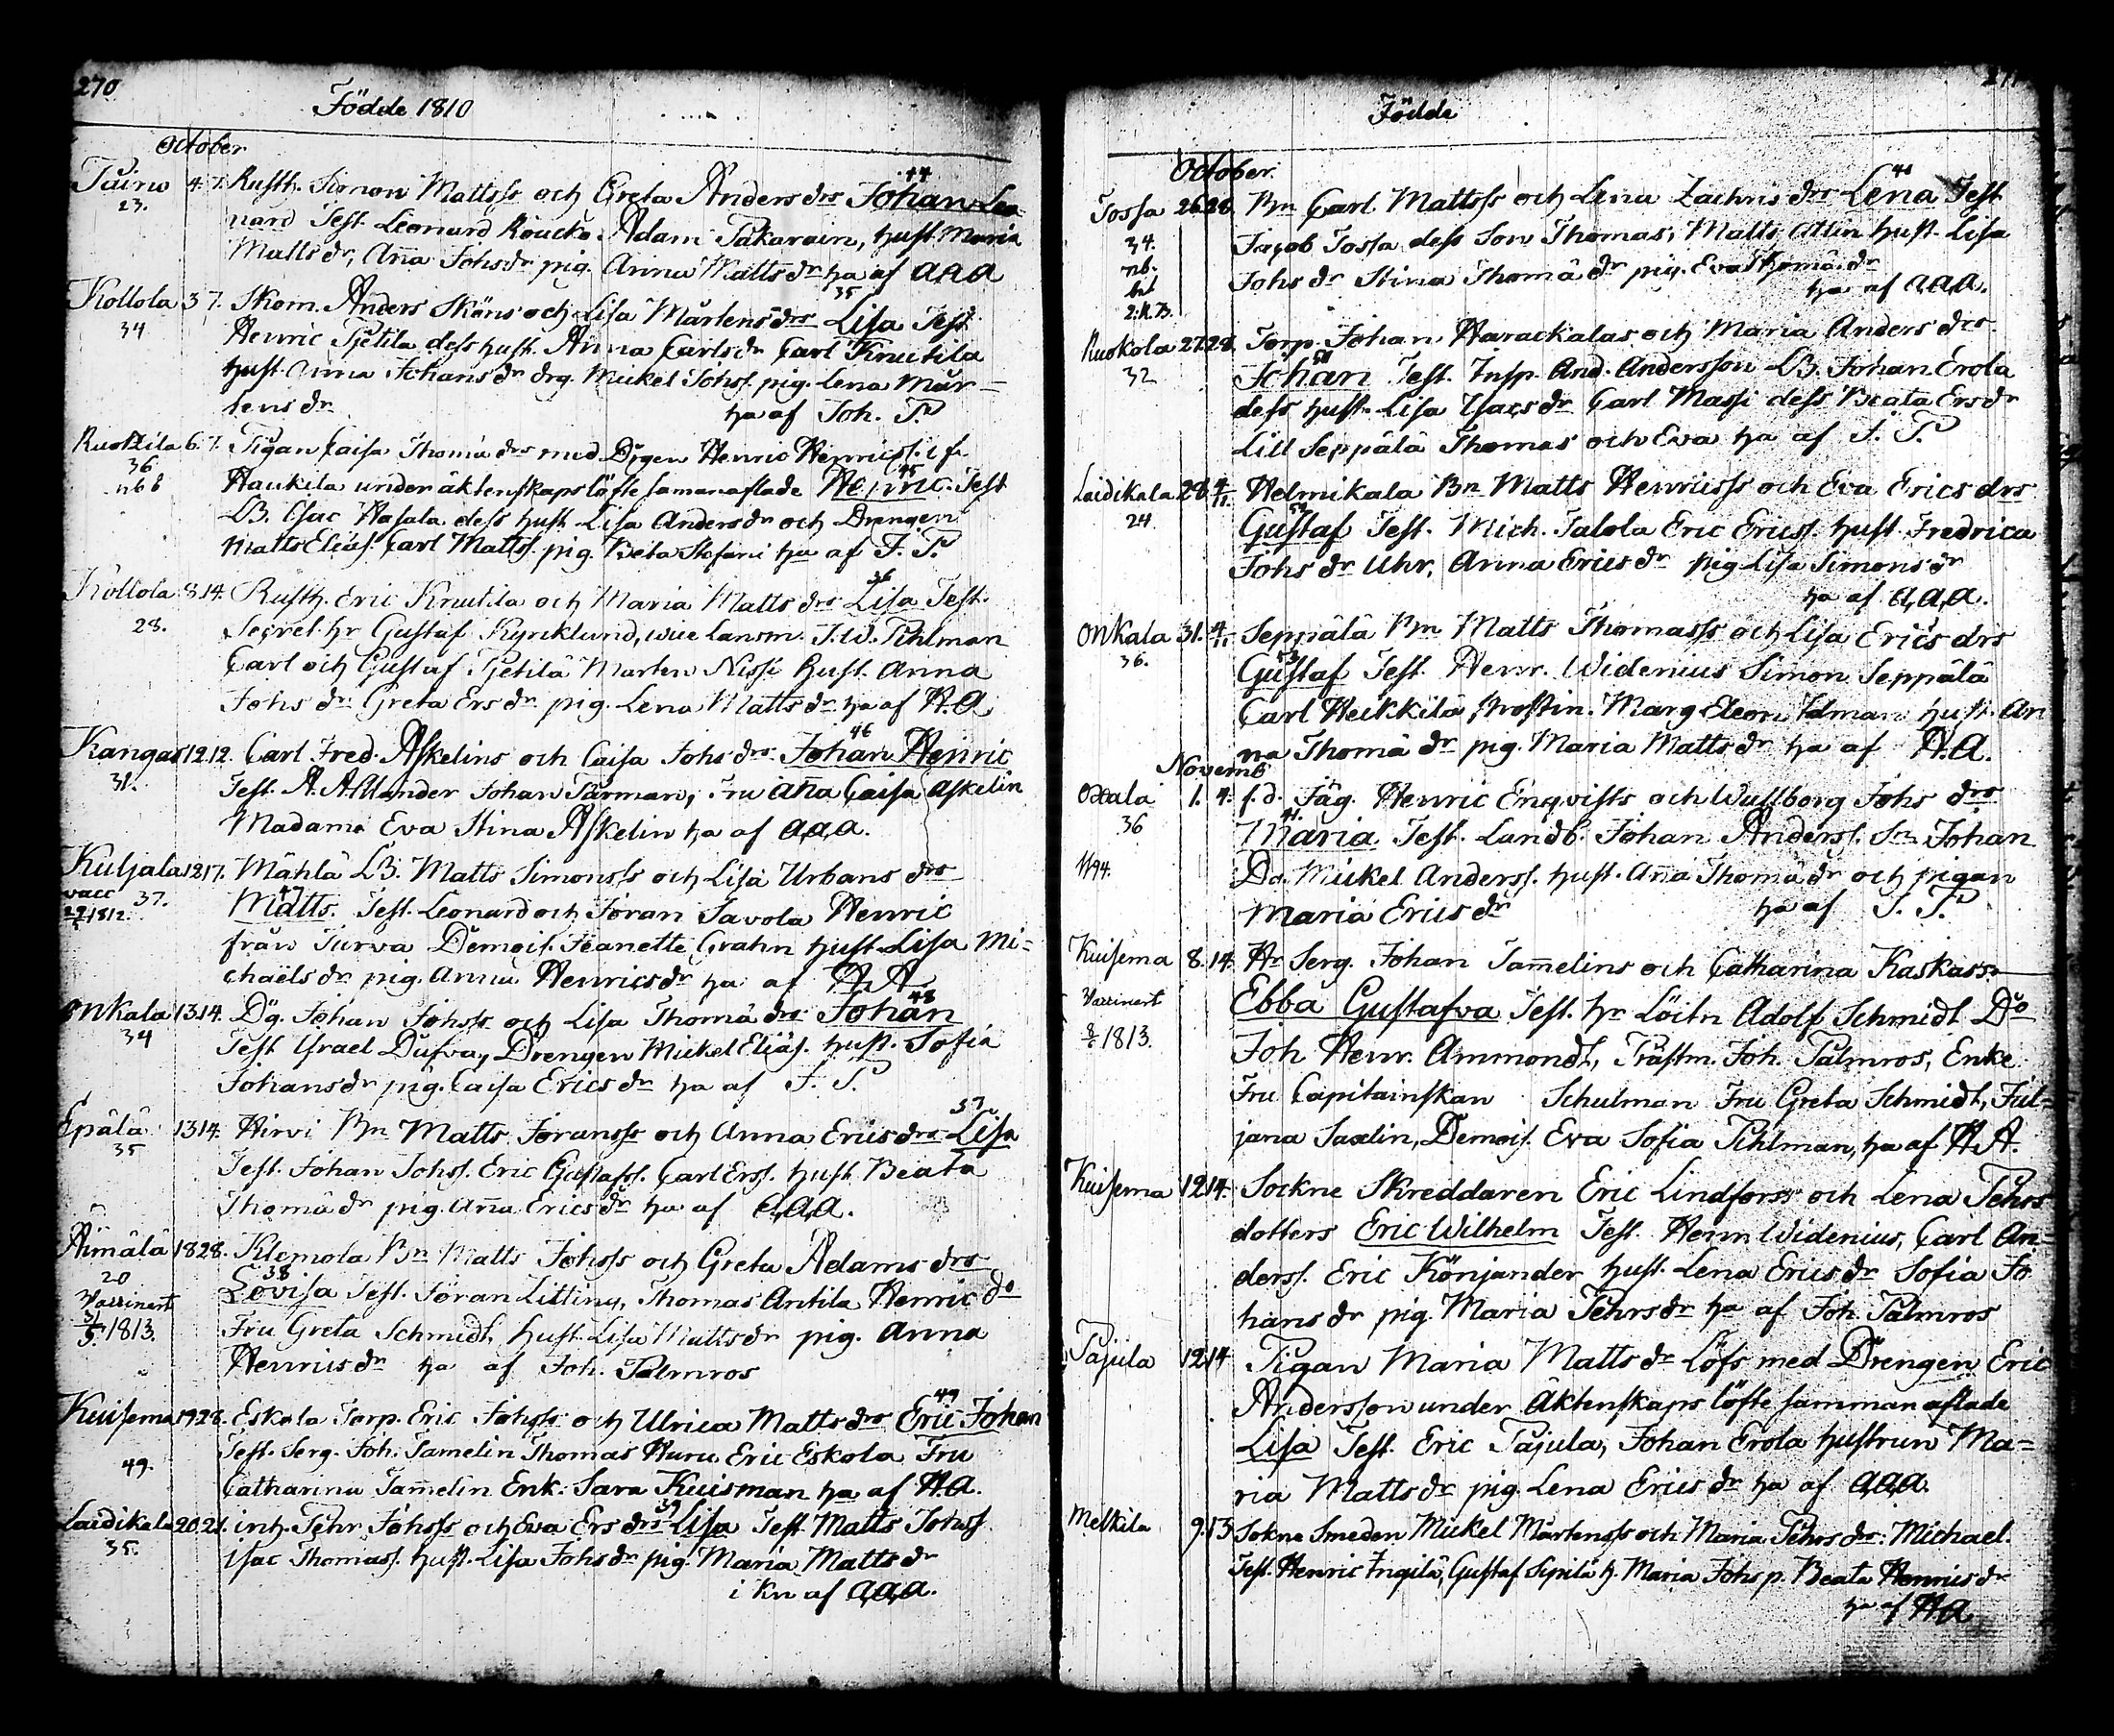 270
Födde 1810
October
44
Tairio 4. 7. Rusth. Simon Mattss och Greta Anders drs Johan Leo-
23. nard Test. Leonard Roucko Adam Pakarain, hust. Maria
Matts dr, Aña Johs dr pig. Anna Matts dr ha af A.A.A
35
Kollola 3 7. Skom. Anders Sköns och Lisa Mårtens drs Lisa Test.
34 Henric Pietila dess hust. Anna Carls dr Carl Knutila
hust. Anna Johans dr drg. Mickel Johss. pig. Lena Mår-
tens dr ha af Joh. P.
Ruokila 6. 7. Pigan Caisa Thomä drs med Drgen Henric Henricss. i fr.
36 45
n68 Haukila under äktenskaps löfte samanaflade Henric. Test
LB. Isac Hasala dess hust Lisa Anders dr och Drengen
Matts Eliäs. Carl Matts. pig. Beta Stefani ha af J. P.
36
Kollola 8.14. Rusth. Eric Knutila och Maria Matts drs Lisa Test.
28. Secret. hr Gustaf Kynklund, wice Lansm. J. W. Pihlman
Carl och Gustaf Pietilä Marten Nissi hust. Anna
Johs dr Greta Ers dr pig. Lena Matts dr ha af H.A.
46
Kangas 12.12. Carl Fred. Askelins och Caisa Johs drs Johan Henric
31. Test. A. Ahlander Johan Färman, Fru Aña Caisa Askelin
Madame Eva Stina Askelin ha af A.A.A.
Kuljala 12 17. Mähla LB. Matts Simonss och Lisa Urbans drs
vacc 37. 47
1812. Matts. Test. Leonard och Jöran Savola Henric
från Turva Demois. Jeanette Grahn hust Lisa Mi-
chaëls dr pig. Anna Henrics dr ha af H.A
48
Onkala 13.14. Dg. Johan Johss och Lisa Thomä drs Johan
34 Test Israel Dufva, Drengen Mickel Eliäs. hust. Sofia
Johans dr pig. Caisa Erics dr ha af J. P.
37
Epälä 13 14. Hirvi Bn Matts Jöranss och Anna Erics drs Lisa
35 Test. Johan Johss. Eric Gustafss. Carl Erss. hust Beata
Thomä dr pig. Aña Erics dr ha af A.A.A.
Äimälä 18 28. Klemola Bn Matts Johss och Greta Adams drs
20 38
Vaccinert Lovisa Test. Jöran Litting, Thomas Antila Henric do
1813. Fru Greta Schmidt, hust. Lisa Matts dr pig. Anna
Henrics dr ha af Joh. Palmros
49
Kuisema 19.28. Eskola Torp. Eric Johss och Ulrica Matts drs Eric Johan
Test. Serg. Joh. Tamelin Thomas Huru Eric Eskola Fru
49. Catharina Tam̃elin Enk. Sara Kuisman ha af H.A.
39
Laidikala 20.21. inh. Pehr Johss och Eva Ers drs Lisa Test Matts Johss
35. Isac Thomass. hust. Lisa Johs dr pig. Maria Matts dr
i Kn af A.A.A.
271
Födde
October.
40
Jossa 26 28. Bn Carl Mattss och Lena Zachris drs Lena Test
34. Jacob Jossa dess Son Thomas, Matts Attin hust. Lisa
nb. Johs dr Stina Thomä dr pig. Eva Thomä dr
ha af A.A.A.
Ruokola 27.28. Torp. Johan Harackalas och Maria Anders drs
50
32 Johan Test. Insp. And. Andersson LB. Johan Erola
dess hust. Lisa Isacs dr Carl Massi dess Beata Ers dr
Lill Seppälä Thomas och Eva ha af J. P.
Laidikala 28. 4/11. Helmikala Bn Matts Henricss och Eva Erics drs
24. Gustaf Test. Mich. Talola Eric Ericss. hust. Fredrica
Johs dr Uhr, Anna Erics dr pig Lisa Simons dr
ha af A.A.A.
Onkala 31. 4/11. Seppälä Bn Matts Thomass och Lisa Erics drs
36. 53
Gustaf Test. Henr. Widenius Simon Seppälä
Carl Heikkilä Prostin. Marg Eleon Idman hust. An
na Thomä dr pig. Maria Matts dr ha af H.A.
Novemb
Oxala 1. 4. f.d. Jäg. Henric Enqvists och Wallborg Johs drs
36 41.
Maria. Test. Landb. Johan Anderss. Sn Johan
Do. Mickel Anderss. hust. Aña Thomä dr och pigan
Maria Erics dr ha af J. P.
Kuisema 8. 14. Hr Serg. Johan Tam̃elins och Catharina Kaskass
Vaccinert Ebba Gustafva Test. hr Löitn Adolf Schmidt Do
1813. Joh Henr. Ammondt, Prästm. Joh. Palmros, Enke
Fru Capitainskan Schulman Fru Greta Schmidt, Jul-
jana Saxelin, Demois. Eva Sofia Pihlman, ha af H.A.
Kuisema 12 14. Sockne Skreddaren Eric Lindforss och Lena Pehrs
dotters Eric Wilhelm Test. Henr Widenius, Carl An-
derss. Eric Könjander hust. Lena Erics dr Sofia Jo
hans dr pig. Maria Pehrs dr ha af Joh. Palmros
Pajula 12 14 Pigan Maria Matts dr Löfs med Drengen Eric
Andersson under Äktenskaps löfte samman aflade
Lisa Test. Eric Pajula, Johan Erola hustrun Ma-
ria Matts dr pig. Lena Erics dr ha af A.A.A.
Mellkila 9.13 Sokne Smeden Mickel Mårtenss och Maria Pehrs dr. Michael.
Test. Henric Frigilä, Gustaf Sipilä h. Maria Johs p. Beata Henrics dr
ha af H.A.